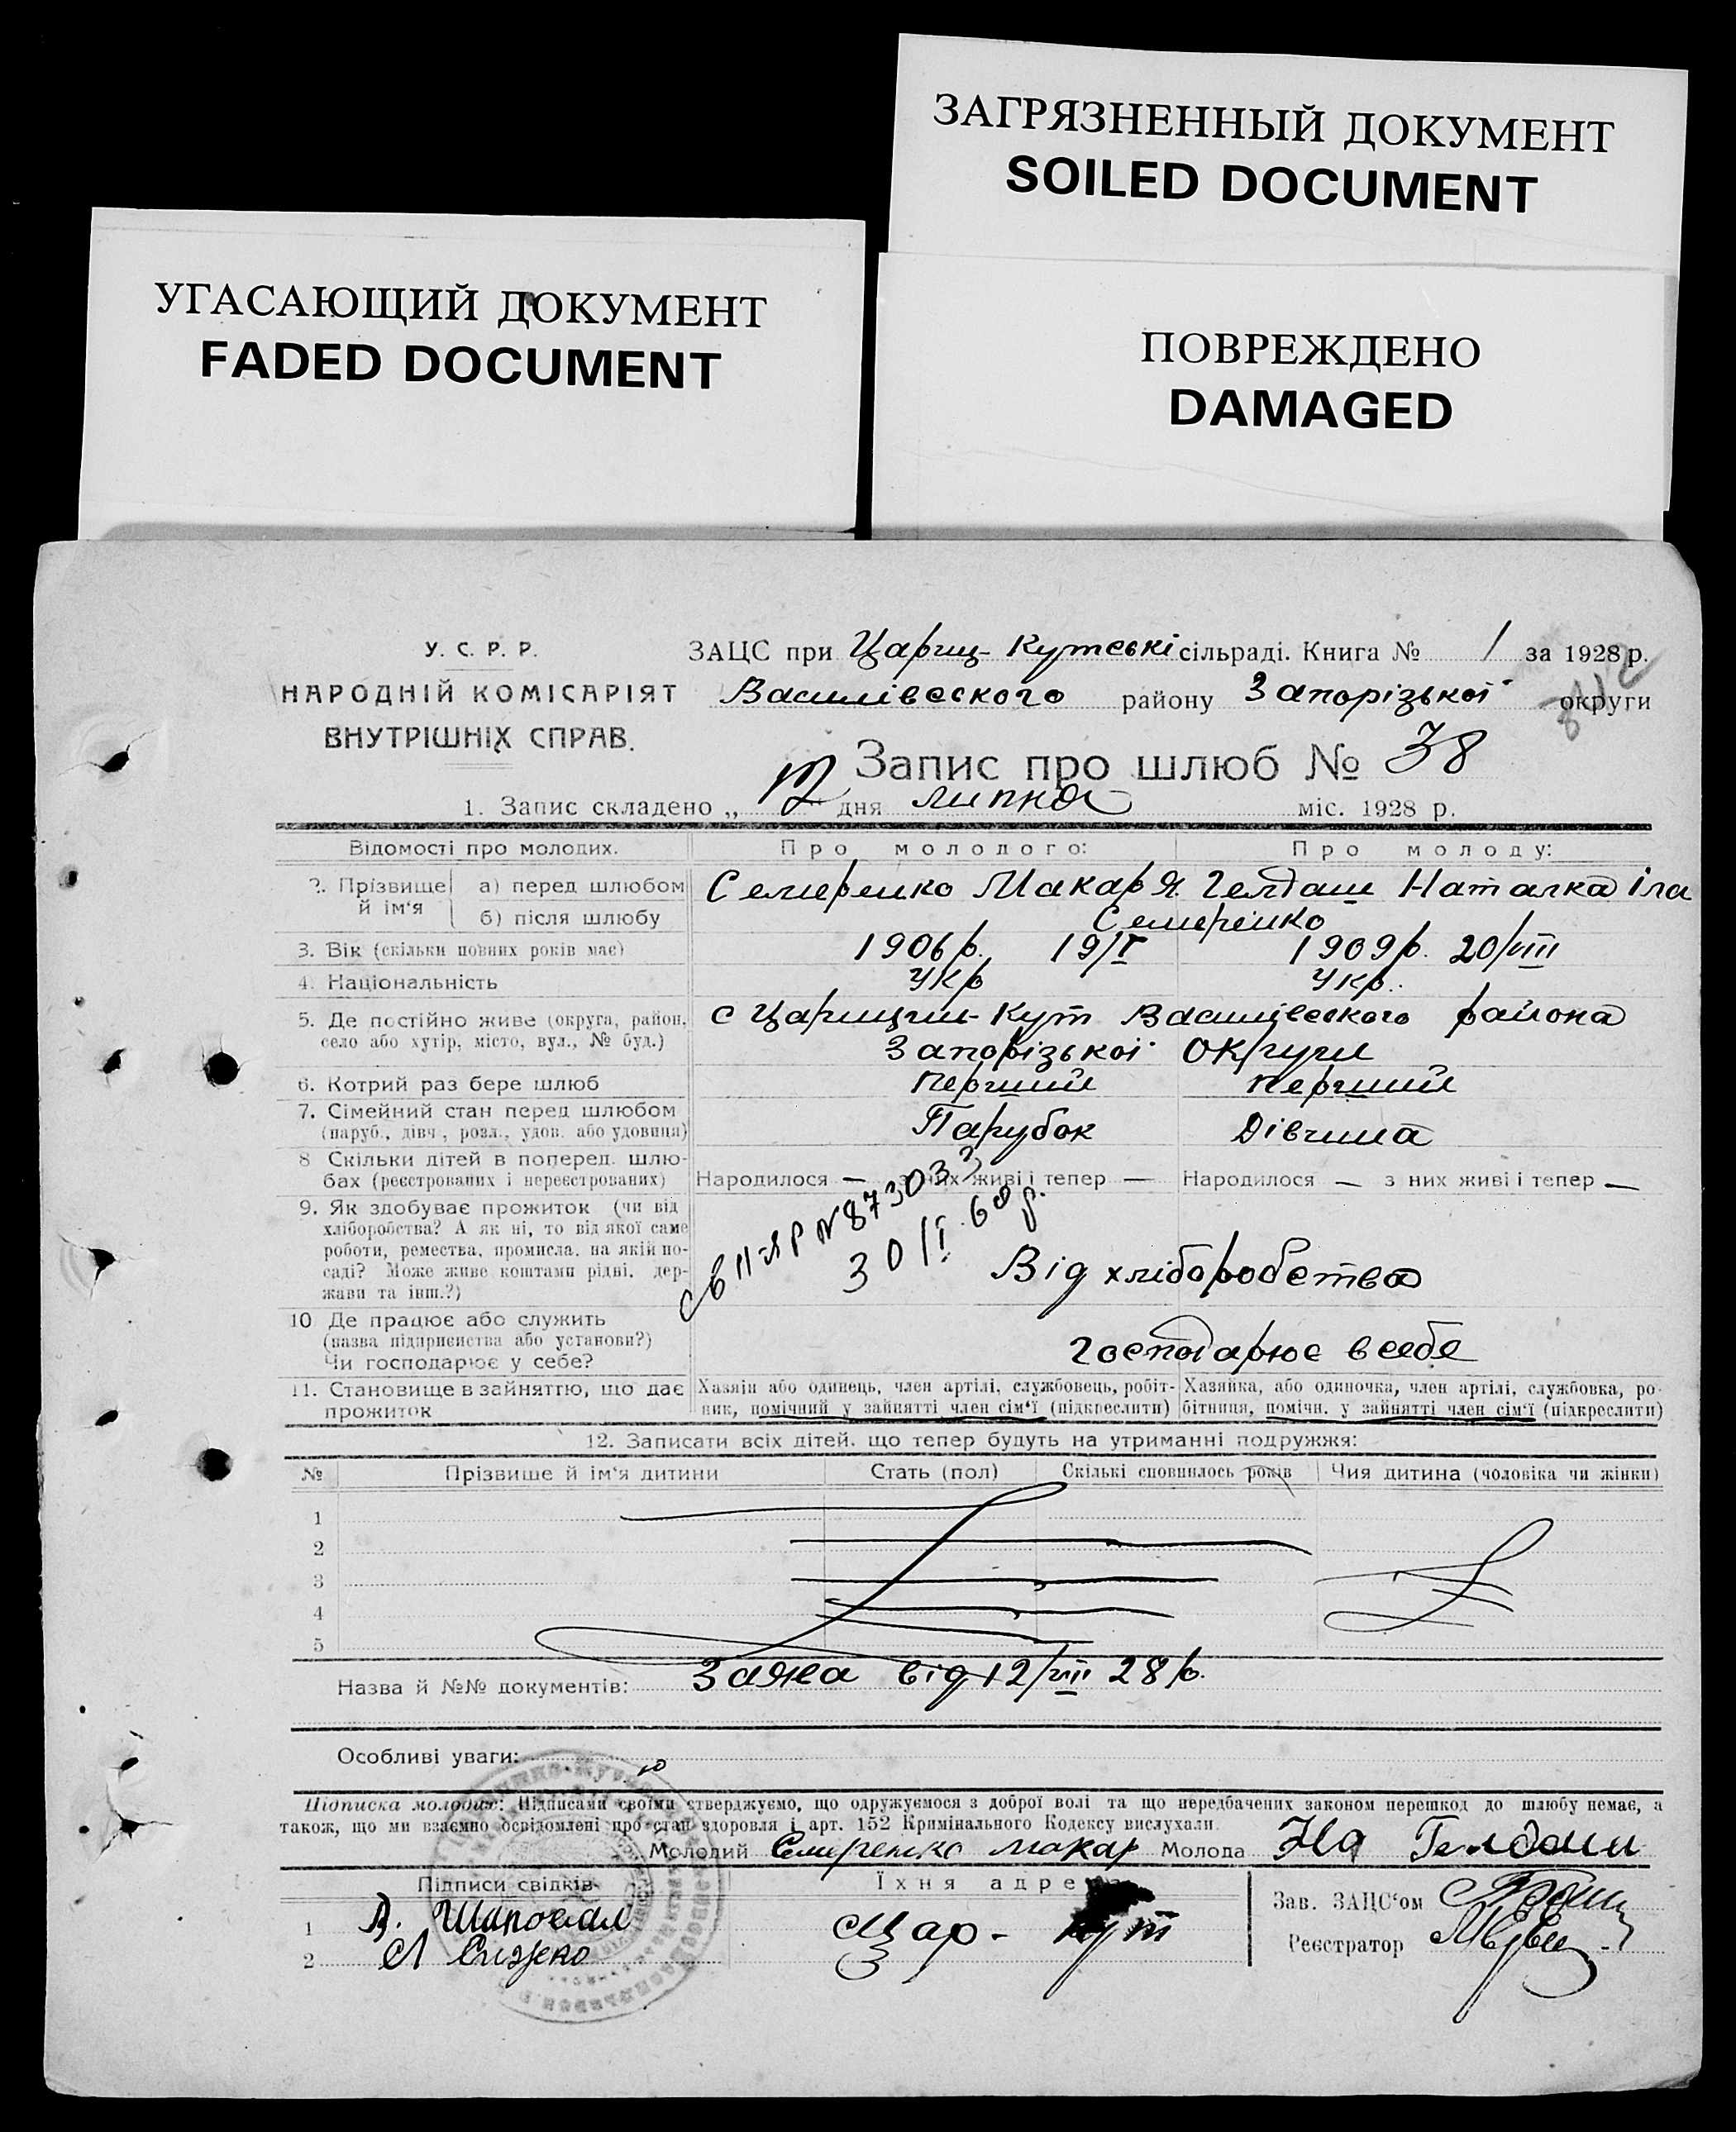 ЗАГРЯЗНЕННЫЙ ДОКУМЕНТ
SOILED DOCUMENT
УГАСАЮЩИЙ ДОКУМЕНТ
FADED DOCUMENT
ПОВРЕЖДЕНО
DAMAGED
У. С. Р. Р.
НАРОДНІЙ КОМІСАРІЯТ
ВНУТРІШНІХ СПРАВ.
ЗАЦС при Цариц-Кутські сільраді. Книга № 1 за 1928 р.
Василівского району Запорізької округи
Запис про шлюб № 38
1. Запис складено „ 12 " дня липня міс. 1928 р.
Відомості про молодих. Про молодого: Про молоду:
2. Прізвище й ім'я а) перед шлюбом Семеренко Макар Я. Гелдаш Наталка Іла
б) після шлюбу Семеренко
3. Вік (скільки повних років має) 1906 р. 19/I 1909 р. 20/VIII
4. Національність Укр Укр.
5. Де постійно живе (округа, район, с Царицин-Кут Василівского района
село або хутір, місто, вул., № буд.) Запорізької Округи
6. Котрий раз бере шлюб Перший Перший
7. Сімейний стан перед шлюбом
(паруб., дівч., розл., удов. або удовиця) Парубок Дівчина
8 Скільки дітей в поперед. шлю-
бах (реєстрованих і нереєстрованих) Народилося — з них живі і тепер — Народилося — з них живі і тепер —
9. Як здобуває прожиток (чи від
хліборобства? А як ні, то від якої саме
роботи, ремества, промисла, на якій по-
саді? Може живе коштами рідні, дер-
жави та інш.?) Від хліборобства
№ 873033
30/I 68 р.
10 Де працює або служить
(назва підприємства або установи?)
Чи господарює у себе? Господарює в себе
11. Становище в зайняттю, що дає прожиток
Хазяїн або одинець, член артілі, службовець, робіт-
ник, помічний у зайнятті член сім'ї (підкреслити)
Хазяйка, або одиночка, член артілі, службовка, ро-
бітниця, помічн. у зайнятті член сім'ї (підкреслити)
12. Записати всіх дітей, що тепер будуть на утриманні подружжя:
№ Прізвище й ім'я дитини Стать (пол) Скількі сповнилось років Чия дитина (чоловіка чи жінки)
1
2
3
4
5
Назва й №№ документів: Заява від 12/VII 28 р.
Особливі уваги:
Підписка молодих: Підписами своїми стверджуємо, що одружуємося з доброї волі та що передбачених законом перешкод до шлюбу немає, а
також, що ми взаємно освідомлені про стан здоровля і арт. 152 Кримінального Кодексу вислухали.
Молодий Семеренко Макар Молода На Гелдаш
Підписи свідків Їхня адреса
1 В. Шаповал Цар-Кут
2
Зав. ЗАЦС'ом
Реєстратор